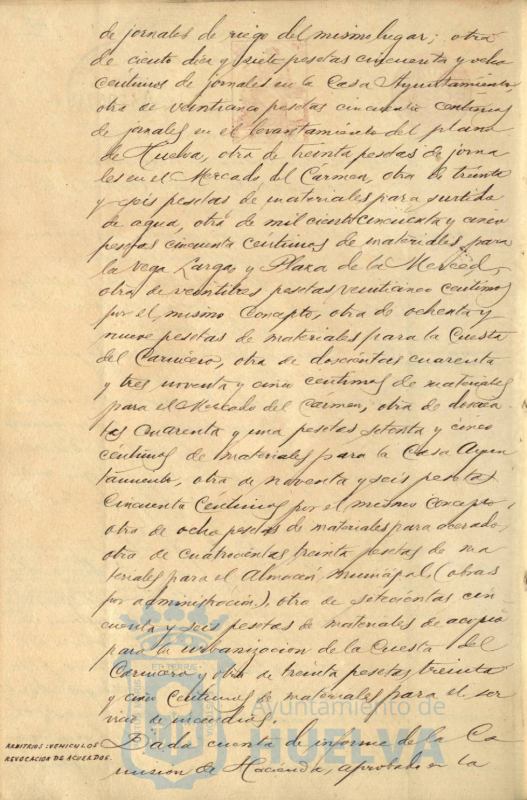 de jornales de riego del mismo lugar; otra
de ciento diez y siete pesetas cincuenta y ocho
centimos de jornales en la Casa Ayuntamiento
otra de veinticinco pesetas cincuenta centimos
de jornales en el levantamiento del plano
de Huelva, otra de treinta pesetas de jorna
les en el Mercado del Cármen, otra de treinta
y seis pesetas de materiales para surtido
de agua, otra de mil ciento cincuenta y cinco
pesetas cincuenta centimos de materiales para
la Vega Larga y Plaza de la Merced,
otra de veintitres pesetas veinticinco centimos
por el mismo concepto, otra de ochenta y
nueve pesetas de materiales para la Cuesta
del Carnicero, otra de doscientas cuarenta
y tres noventa y cinco centimos de materiales
para el Mercado del Cármen, otra de doscien
tas cuarenta y una pesetas setenta y cinco
centimos de materiales para la Casa Ayun
tamiento, otra de noventa y seis pesetas
cincuenta céntimos por el mismo concepto,
otra de ocho pesetas de materiales para acerado,
otra de cuatrocientas treinta pesetas de ma
teriales para el Almacén municipal (obras
por administración), otra de setecientas cin
cuenta y seis pesetas de materiales de acopio
para la urbanizacion de la Cuesta del
Carnicero y otra de treinta pesetas treinta
y cinco centimos de materiales para el ser
vicio de incendios.
Ayuntamiento de
HUELVA
ARBITRIOS: VEHICULOS
REVOCACION DE ACUERDOS.
Dada cuenta de informe de la Co
mision de Hacienda, aprobado en la